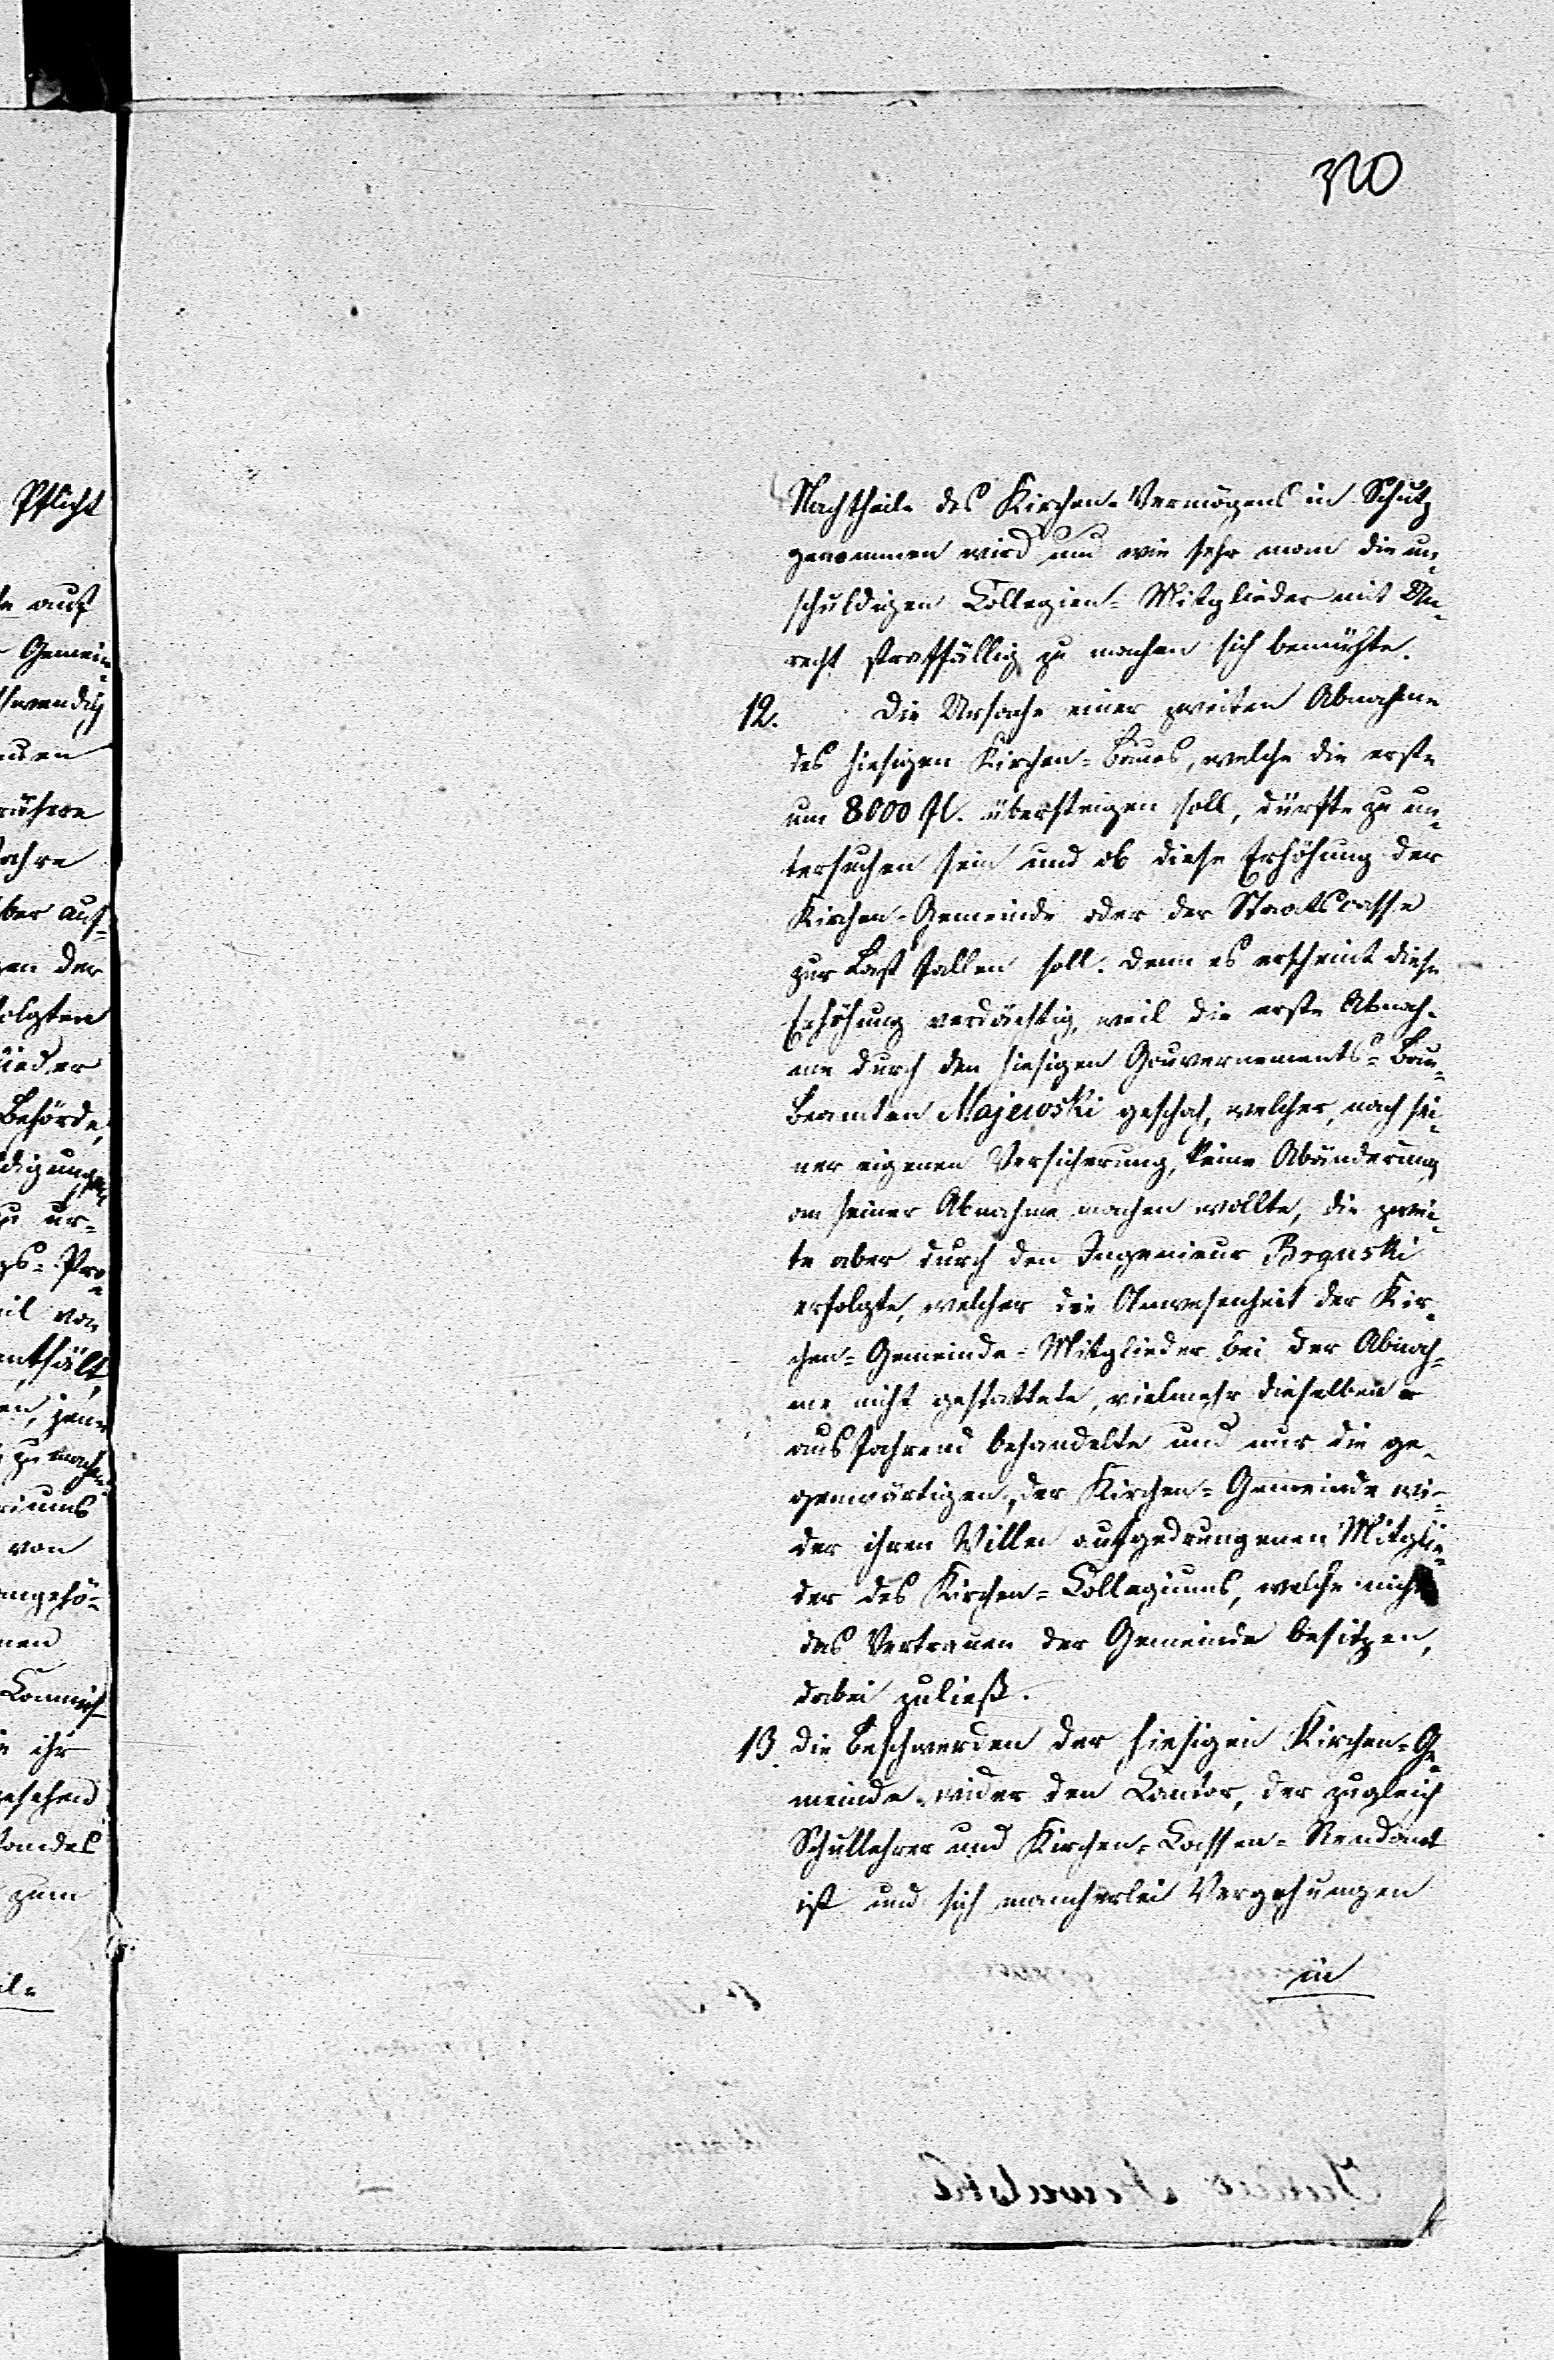 320
Nachtheile des Kirchen-Vermögens in Schutz
genommen wird und wie sehr man die un-
schuldigen Collegien-Mitglieder mit Un-
recht straffällig zu machen sich bemühte.
12. Die Ursache einer zweiten Abnahme
des hiesigen Kirchen-Baues, welche die erste
um 8000 fl. übersteigen soll, dürfte zu un-
tersuchen sein und ob diese Erhöhung der
Kirchen-Gemeinde oder der Staatscasse
zur Last fallen soll. Denn es erscheint diese
Erhöhung verdächtig, weil die erste Abnah-
me durch den hiesigen Gouvernements-Bau-
beamten Majewski geschah, welcher, nach sei-
ner eigenen Versicherung, keine Abänderung
an seiner Abnahme machen wollte, die zwei-
te aber durch den Ingenieur
erfolgte, welcher die Anwesenheit der Kir-
chen-Gemeinde-Mitglieder bei der Abnah-
me nicht gestattete, vielmehr dieselben
ausfahrend behandelte und nur die ge-
genwärtigen, der Kirchen-Gemeinde wi-
der ihren Willen aufgedrungenen Mitglie-
der des Kirchen-Collegiums, welche nicht
das Vertrauen der Gemeinde besitzen,
dabei zuließ.
13. Die Beschwerden der hiesigen Kirchen-Ge-
meinde wider den Cantor, der zugleich
Schullehrer und Kirchen-Cassen-Rendant
ist und sich mancherlei Vergehungen
in
Pflicht
auf
Gemein-
ahre
aus-
der
Behörde,
von
zu machen
von
ihr
zum